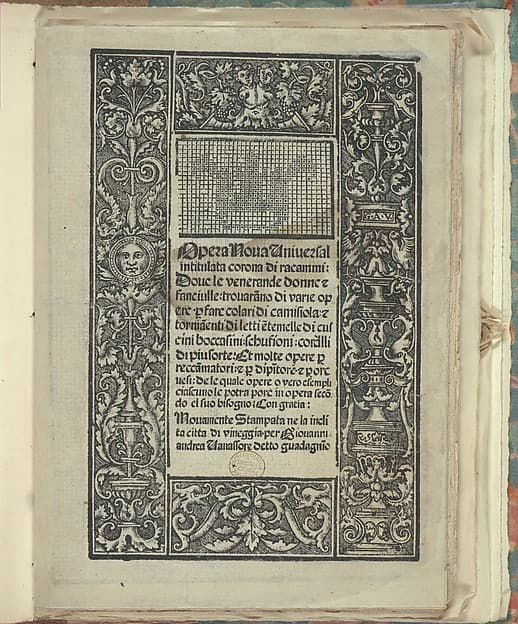 Opera Noua Uniuersal
intitulata corona di racammi:
Doue le venerande donne &
fanciulle: trouarãno di varie op
ere p fare colari di camisiola: &
torniãenti di letti ẽtemelle di cus
cini boccasini: schufioni: corõlli
di piu sorte: Et molte opere p
reccãmatori: & p dipĩtore: & p orc
uesi: de le quale opere o vero esempli
ciascuno le potra porè in opera secõ
do el suo bisogno: Con gratia:
Nouamente Stampata ne la incli
ta citta di vineggia. per Giouanni
andrea Uauassore detto guadagnĩo
G.A.V.